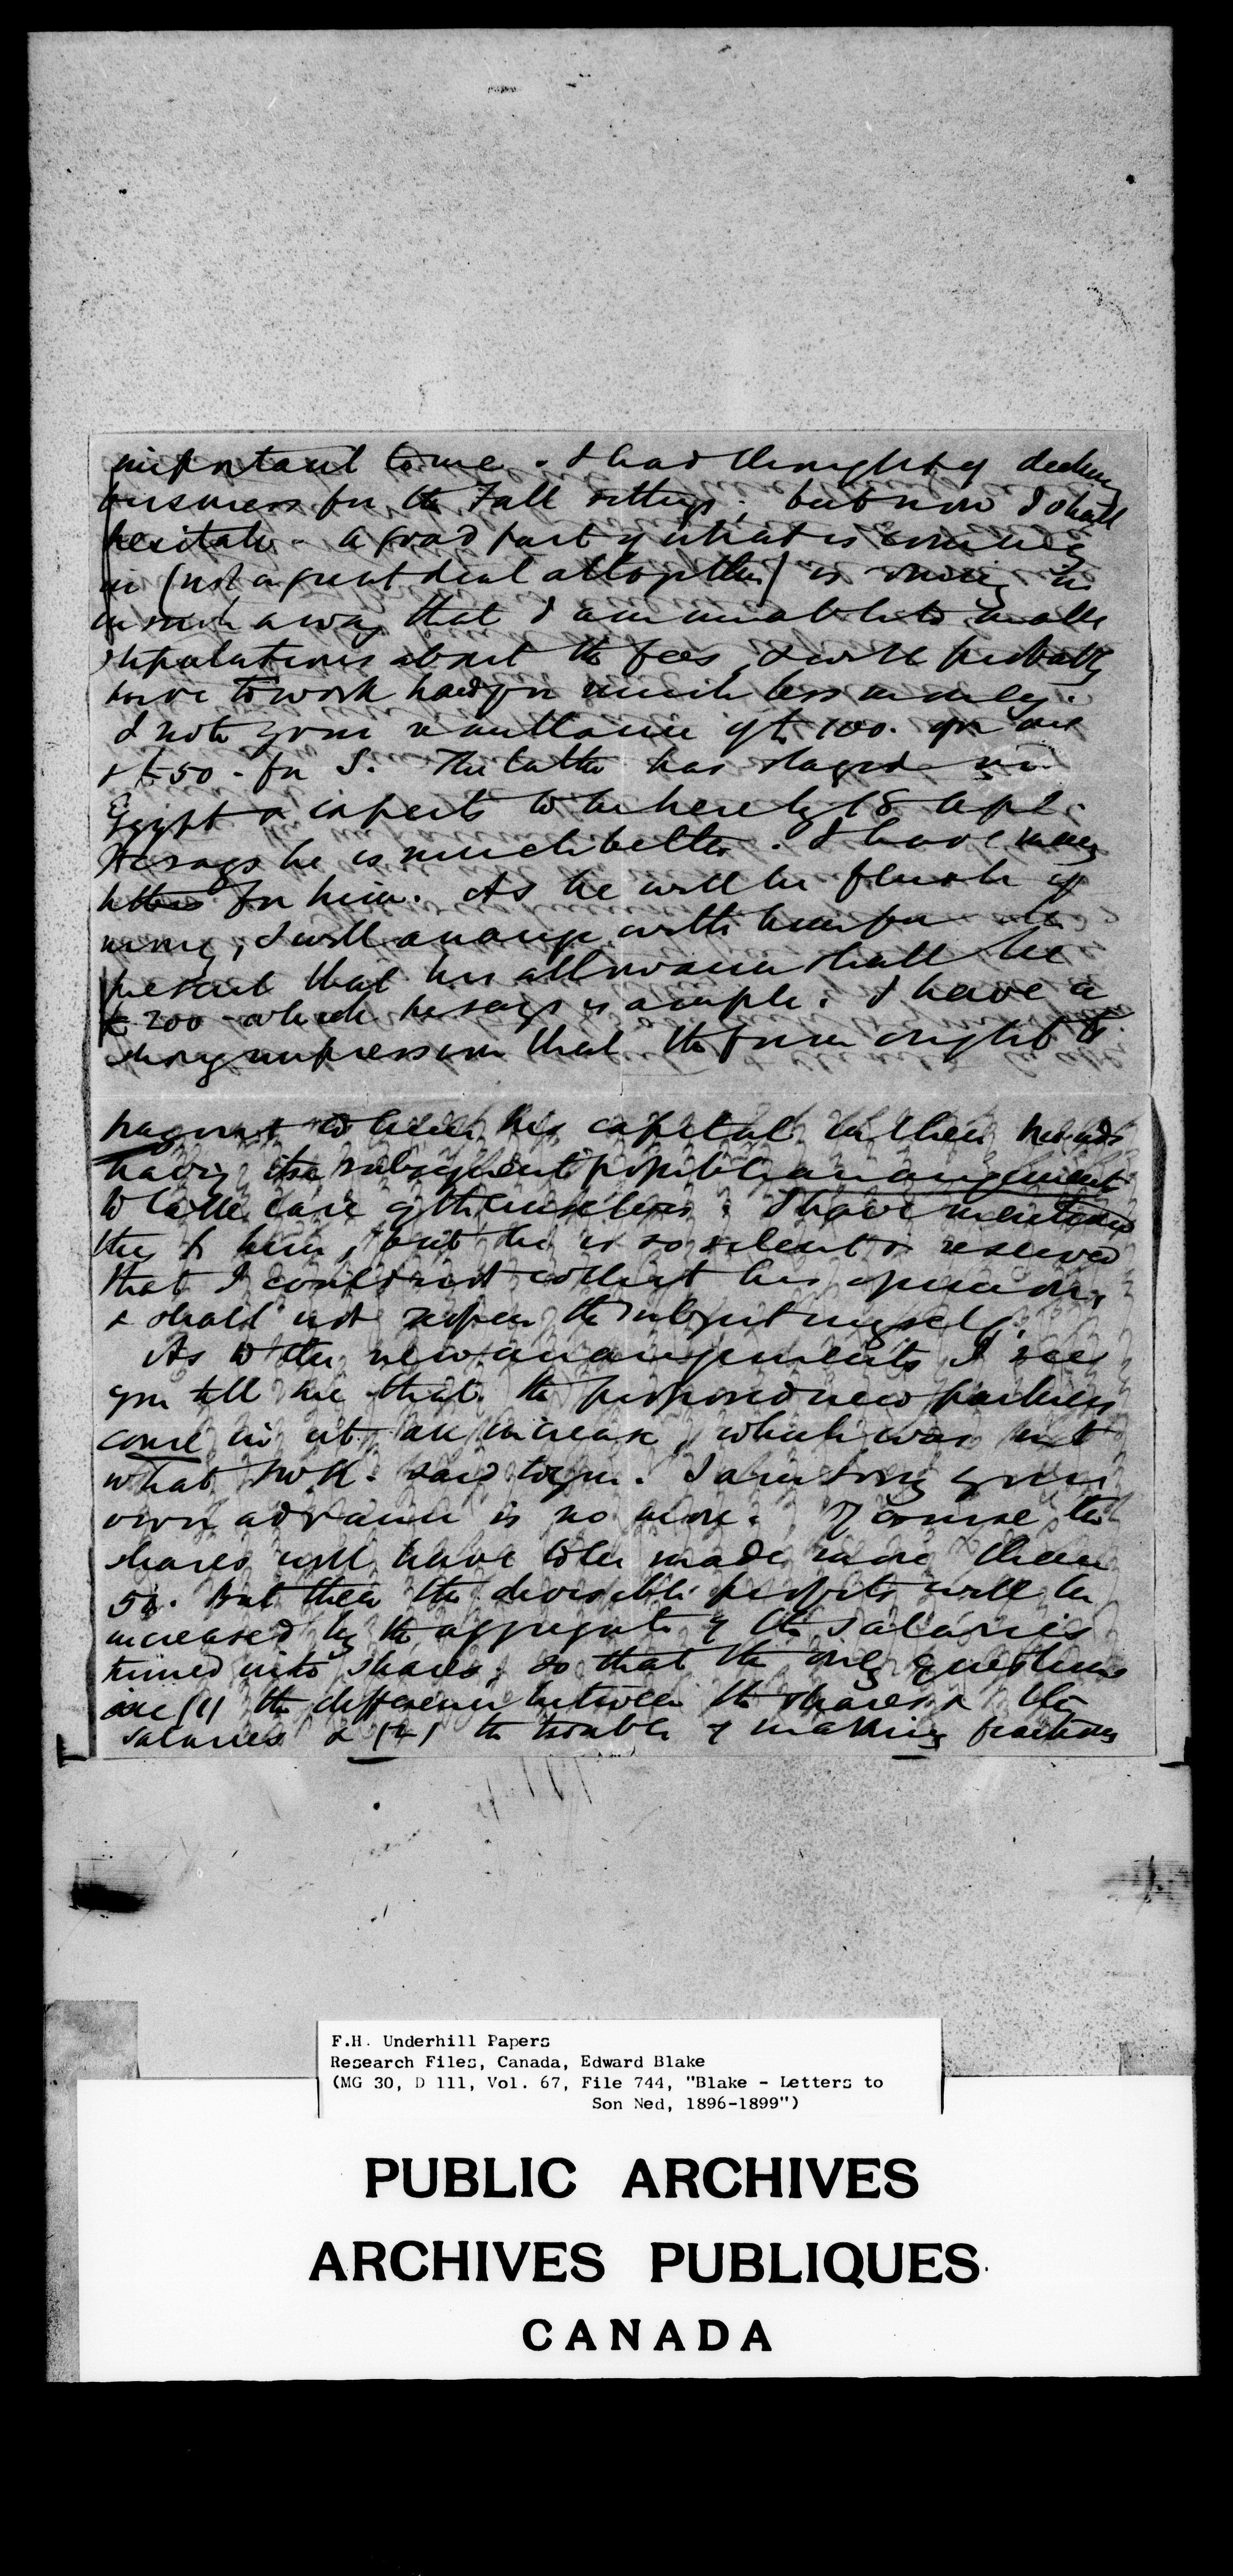 important to me. I had thought of declining
business for the Fall sittings; but now I shall
hesitate - a good part of what is coming
in (not a great deal altogether) is coming in
in such a way that I am unable to make
stipulations about the fees, & will probably
have to work hard for much less money.
I note your remittance of £100. for me
& £50 - for S. The latter has stayed in
Egypt & expects to be here by 18 Apl.
He says he is much better. I have many
letters for him. As he will be flush of
money, I will arrange with him for the
present that his allowance shall be
£200 - which he says is ample. I have a
strong impression that the firm ought to
his capital in their hands
having the subsequent arrangement
to take care of themselves. I have mentioned
this to him, but he is so silent & reserved
that I could not collect his opinion,
& shall not reopen the subject myself.
As to the new arrangements I see
you tell me that the proposed new partners
come in at an increase, which was not
what said to you. I am sorry your
own advance is no more. Of course the
shares will have to be made more than
50. But then the divisible profits will be
increased by the aggregate of the salaries
turned into shares; so that the only questions
are (1) the difference between the shares & the
salaries & (2) the trouble of making fractions
F.H. Underhill Papers
Research Files, Canada, Edward Blake
(MG 30, D 111, Vol. 67, File 744, "Blake - Letters to
Son Ned, 1896-1899")
PUBLIC ARCHIVES
ARCHIVES PUBLIQUES
CANADA